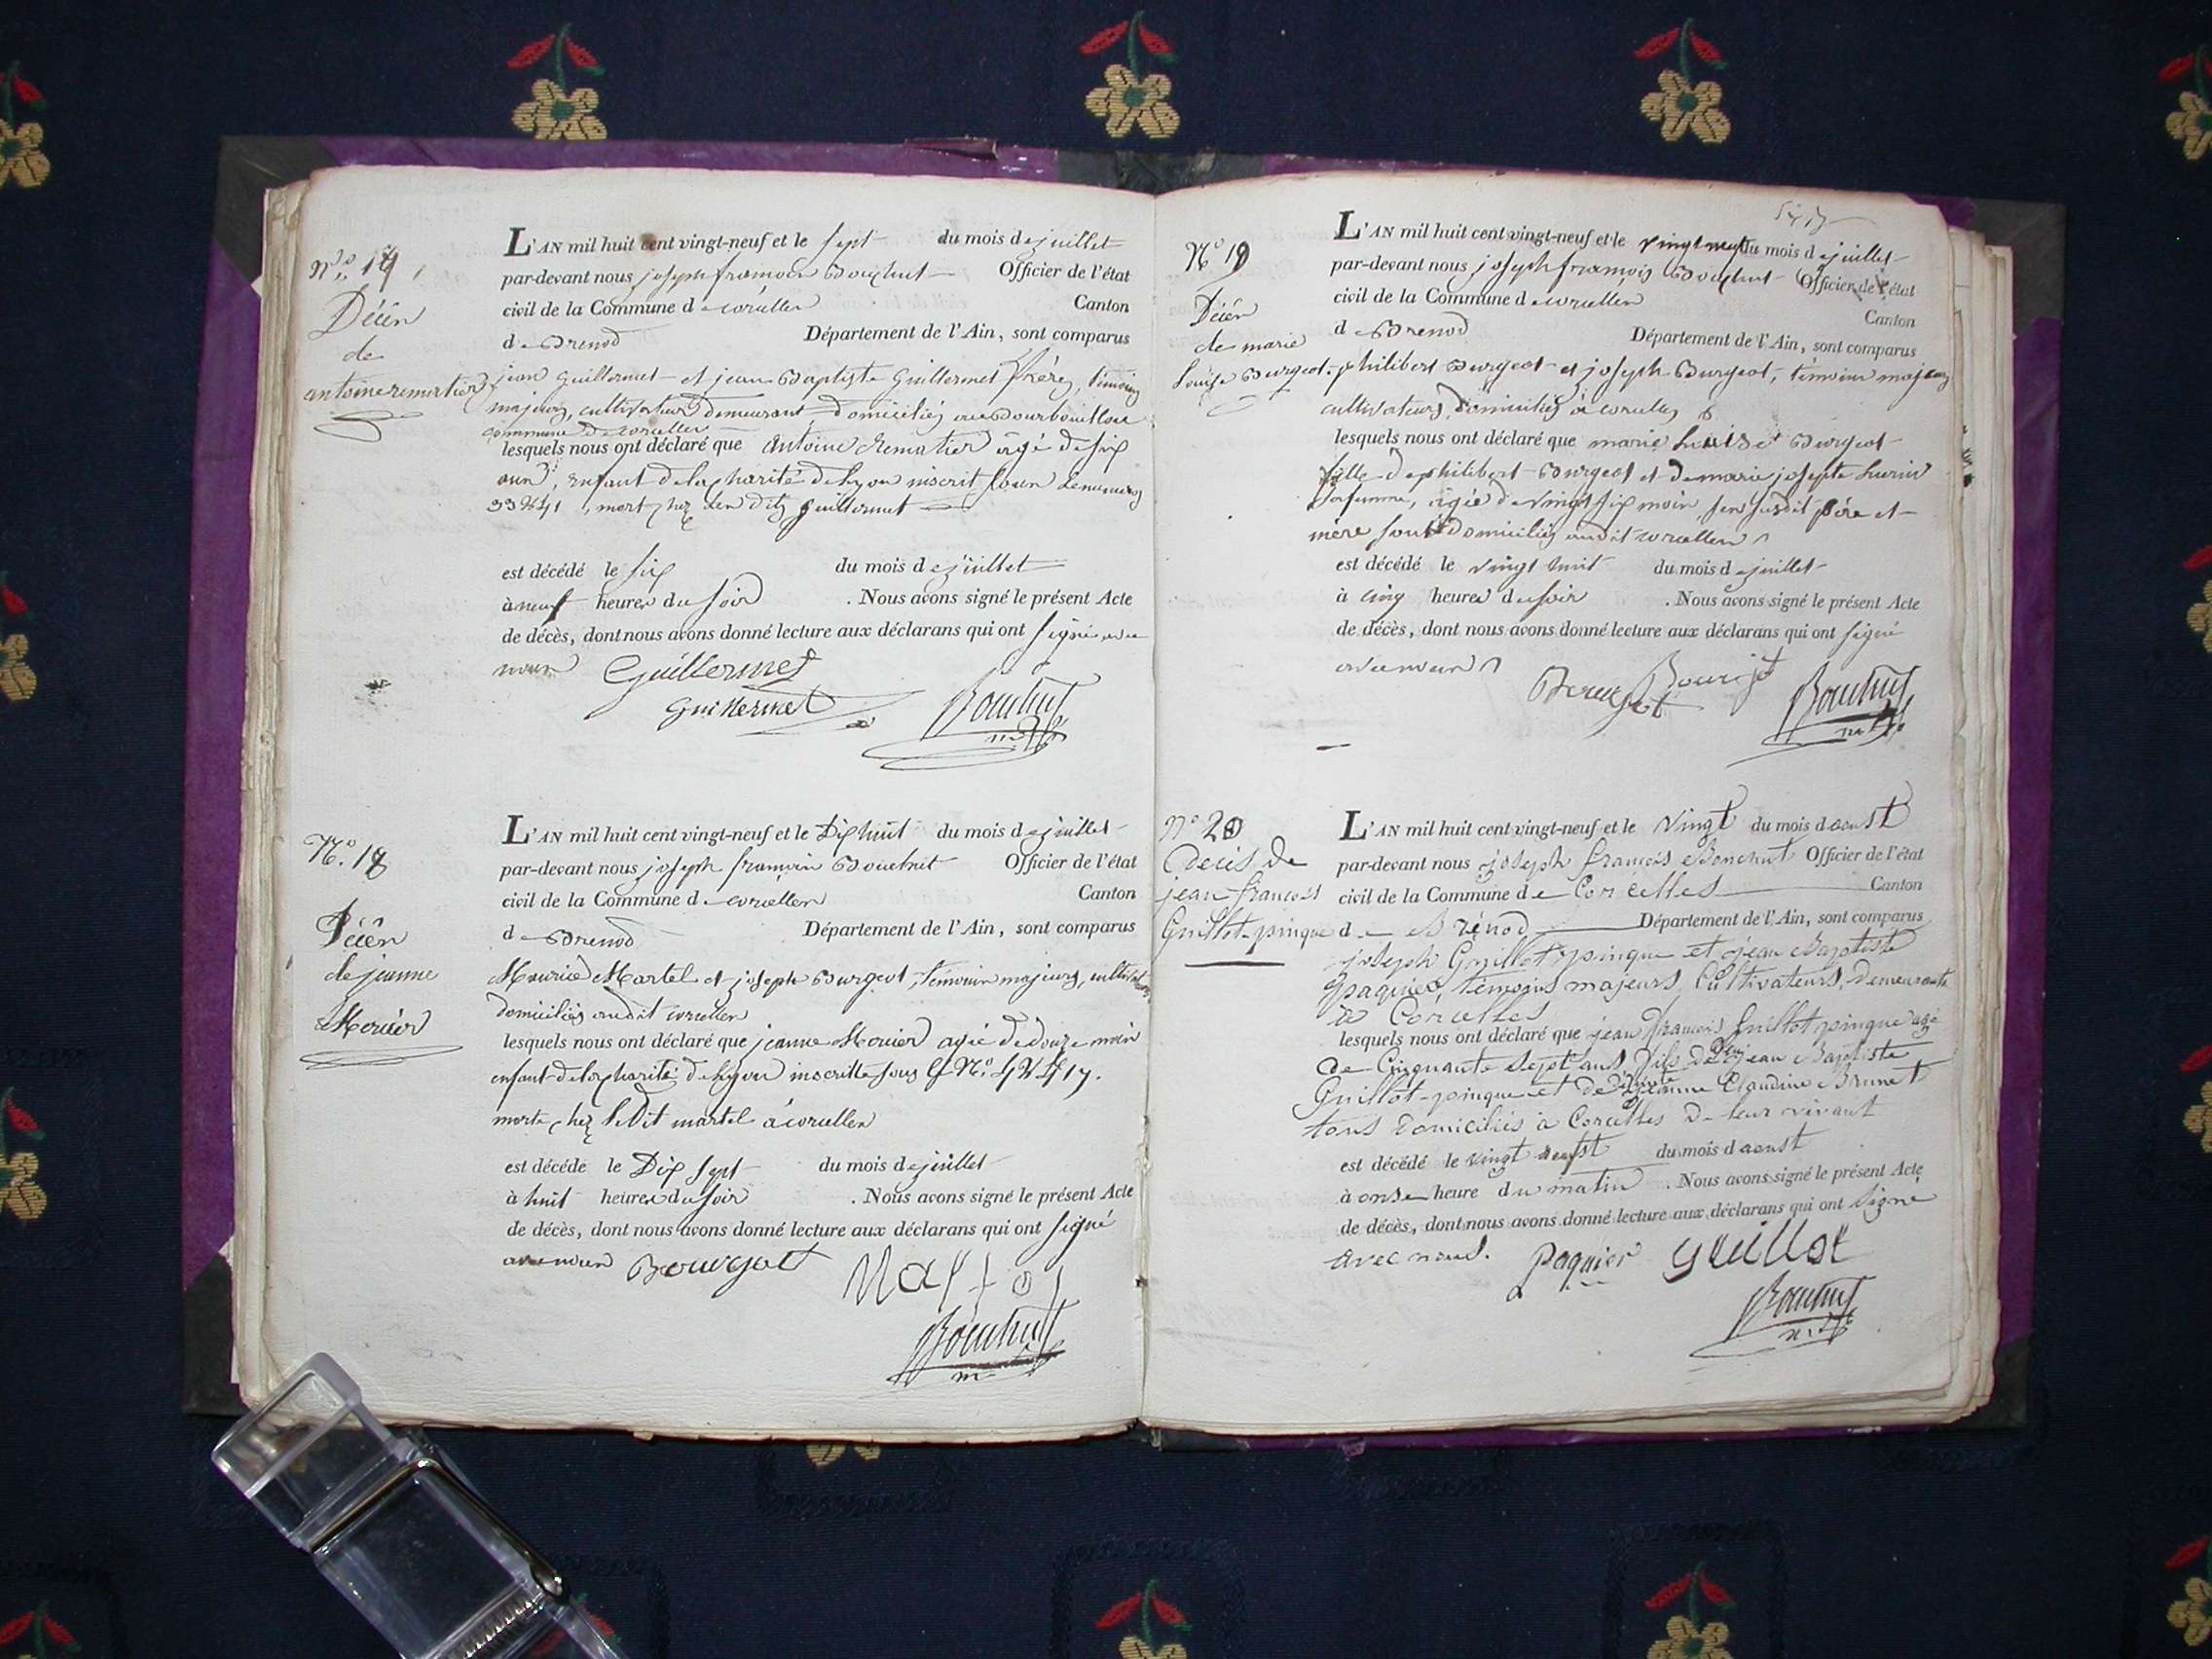 N.º 17
Décès
de
antoine rematier
L'AN mil huit cent vingt-neuf et le sept du mois de juillet
par-devant nous joseph françois Bouchut Officier de l'état
civil de la Commune de corcelles Canton
de Brenod Département de l'Ain, sont comparus
jean Guillermet et jean Baptiste Guillermet frères, témoins
majeurs, cultivateurs demeurant domiciliés
commune de corcelles
lesquels nous ont déclaré que antoine Rematier âgé de six
ans, enfant de la charité de Lyon inscrit sous le numero
mort chez les dits Guillermet
est décédé le six du mois de juillet
à neuf heures du soir . Nous avons signé le présent Acte
de décès, dont nous avons donné lecture aux déclarans qui ont signé avec
nous Guillermet
Guillermet Bouchut
N.º 18
Décès
de jeanne
Mercier
L'AN mil huit cent vingt-neuf et le Dix huit du mois de juillet
par-devant nous joseph françois Bouchut Officier de l'état
civil de la Commune de corcelles Canton
de Brenod Département de l'Ain, sont comparus
Maurice Martel et joseph Burgeot, témoins majeurs, cultivateurs
domiciliés audit corcelles
lesquels nous ont déclaré que jeanne Mercier agée de douze mois
enfant de la charité de Lyon inscritte sous le N.º
morte chez le Dit martel à corcelles
est décédé le Dix sept du mois de juillet
à huit heures du soir . Nous avons signé le présent Acte
de décès, dont nous avons donné lecture aux déclarans qui ont signé
avec nous Bourgeot
Bouchut
N.º 19
Décès
de marie
Louise Burgeot
L'AN mil huit cent vingt-neuf et le vingt neuf du mois de juillet
par-devant nous joseph françois Bouchut Officier de l'état
civil de la Commune de corcelles
Canton
de Brenod Département de l'Ain, sont comparus
philibert Burgeot et joseph Burgeot, témoins majeurs
cultivateurs, domiciliés à corcelles
lesquels nous ont déclaré que marie Louise Burgeot
fille de philibert Burgeot et de marie josephte
sa femme, agée de vingt six mois ses susdit père et
mère sont domiciliés audit corcelles
est décédé le vingt huit du mois de juillet
à cinq heures du soir . Nous avons signé le présent Acte
de décès, dont nous avons donné lecture aux déclarans qui ont signé
avec nous
Bourjot
Bourgot Bouchut
N.º 20
Décès de
jean-françois
Guillot-pinque
L'AN mil huit cent vingt-neuf et le vingt du mois d aoust
par-devant nous joseph françois Bouchut Officier de l'état
civil de la Commune de Corcelles Canton
de Brénod Département de l'Ain, sont comparus
joseph Guillot-pinque et jean Baptiste
paquier, témoins majeurs, Cultivateurs, demeurants
à Corcelles
lesquels nous ont déclaré que jean françois Guillot pinque agé
de Cinquante sept ans fils de feu jean Baptiste
Guillot-pinque et de défunte jeanne Claudine Brunet
tous domiciliés à Corcelles de leur vivant
est décédé le vingt du mois d aoust
à onse heure du matin . Nous avons signé le présent Acte
de décès, dont nous avons donné lecture aux déclarans qui ont signé
avec nous. paquier Guillot
Bouchut